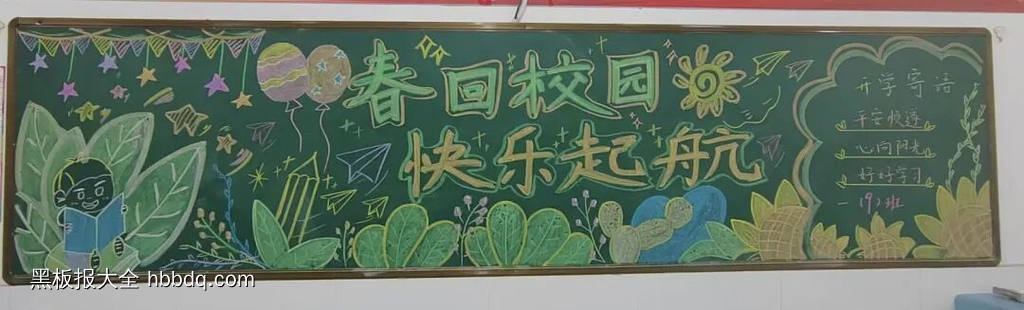 春回校园
快乐起航
开学寄语
平安快逐
心向阳光
好好学习
一(9)班
黑板报大全 hbbdq.com